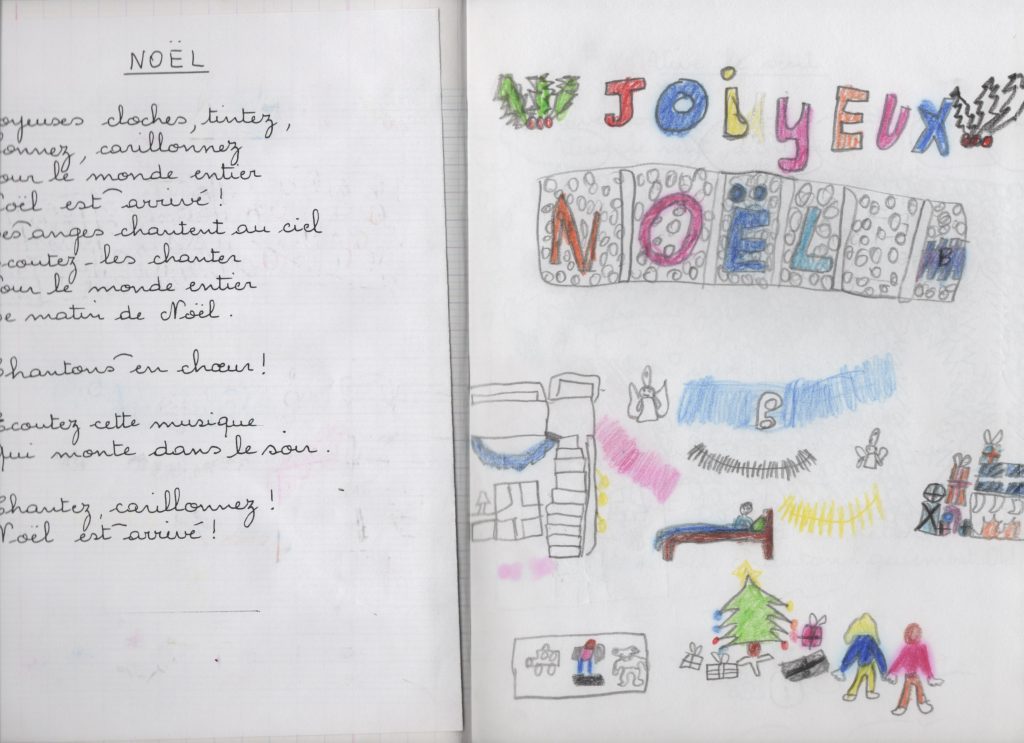 NOËL
oyeuses cloches, tintez,
onnez, carillonnez
our le monde entier
oël est arrivé !
es anges chantent au ciel
coutez-les chanter
our le monde entier
e matin de Noël.
Chantons en chœur !
Ecoutez cette musique
qui monte dans le soir.
Chantez, carillonnez !
Noël est arrivé !
JOiyEUX
NOËL
B
B